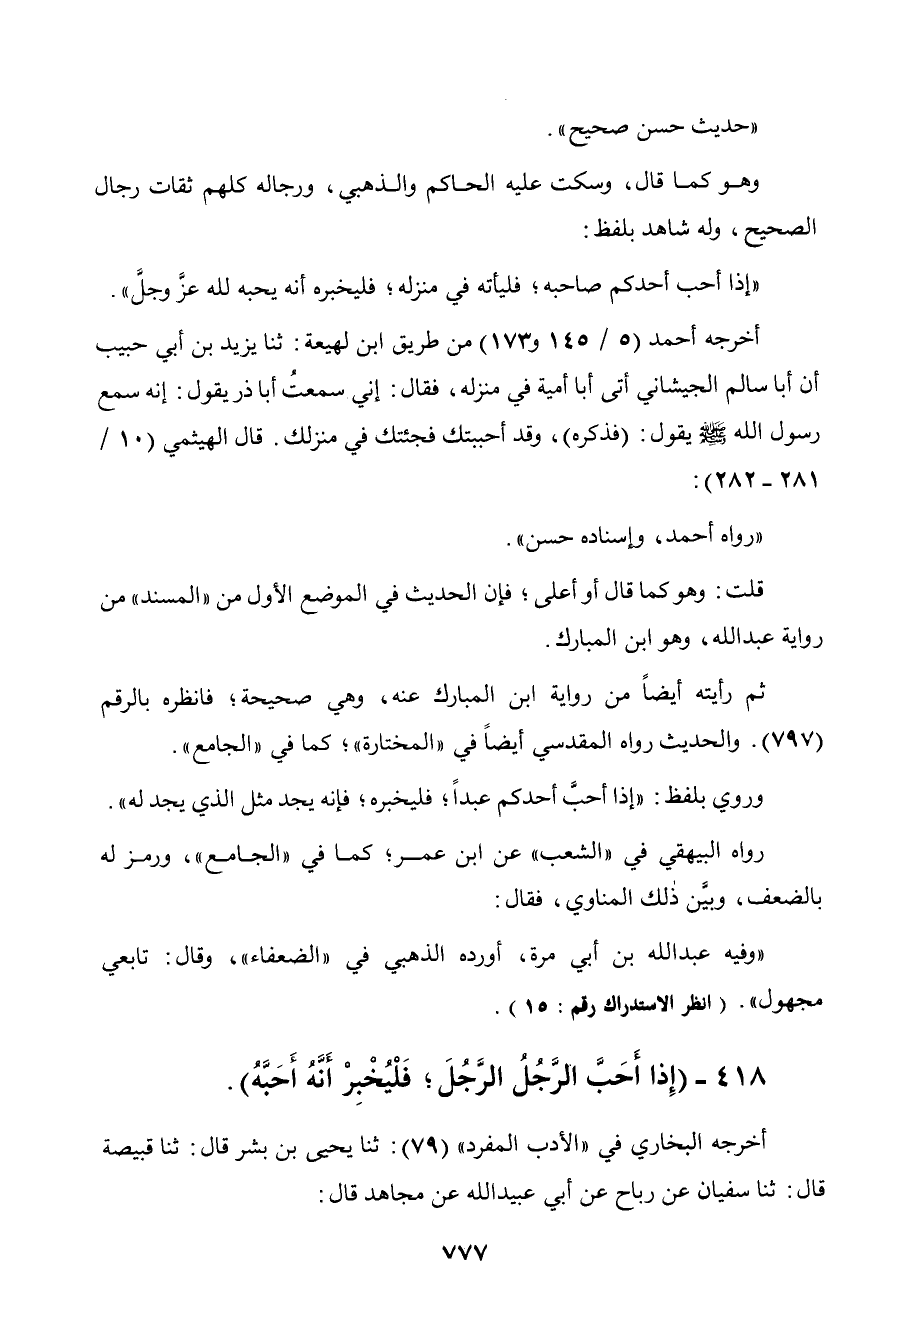 «حديث حسن صحيح» .
وهـو كمـا قال، وسكت عليه الحـاكم والـذهبي، ورجاله كلهم ثقات رجال
الصحيح، وله شاهد بلفظ:
«إذا أحب أحدكم صاحبه؛ فليأته في منزله؛ فليخبره أنه يحبه لله عزَّ وجلَّ» .
أخرجه أحمد (٥ / ١٤٥ و١٧٣) من طريق ابن لهيعة: ثنا يزيد بن أبي حبيب
أن أبا سالم الجيشاني أتى أبا أمية في منزله، فقال: إني سمعتُ أبا ذر يقول: إنه سمع
رسول الله ﷺ يقول: (فذكره)، وقد أحببتك فجئتك في منزلك. قال الهيثمي (١٠ /
٢٨١ - ٢٨٢):
«رواه أحمد، وإسناده حسن» .
قلت: وهو كما قال أو أعلى؛ فإن الحديث في الموضع الأول من «المسند» من
رواية عبدالله، وهو ابن المبارك.
ثم رأيته أيضاً من رواية ابن المبارك عنه، وهي صحيحة؛ فانظره بالرقم
(٧٩٧). والحديث رواه المقدسي أيضاً في «المختارة»؛ كما في «الجامع» .
وروي بلفظ: «إذا أحبَّ أحدكم عبداً؛ فليخبره؛ فإنه يجد مثل الذي يجد له» .
رواه البيهقي في «الشعب» عن ابن عمـر؛ كمـا في «الجـامع»، ورمـز له
بالضعف، وبيَّن ذٰلك المناوي، فقال:
«وفيه عبدالله بن أبي مرة، أورده الذهبي في «الضعفاء»، وقال: تابعي
مجهول» . ( انظر الاستدراك رقم : ١٥ ) .
٤١٨ - (إِذا أَحَبَّ الرَّجُلُ الرَّجُلَ؛ فَلْيُخْبِرْ أَنَّهُ أَحَبَّهُ).
أخرجه البخاري في «الأدب المفرد» (٧٩): ثنا يحيى بن بشر قال: ثنا قبيصة
قال: ثنا سفيان عن رباح عن أبي عبيدالله عن مجاهد قال:
٧٧٧